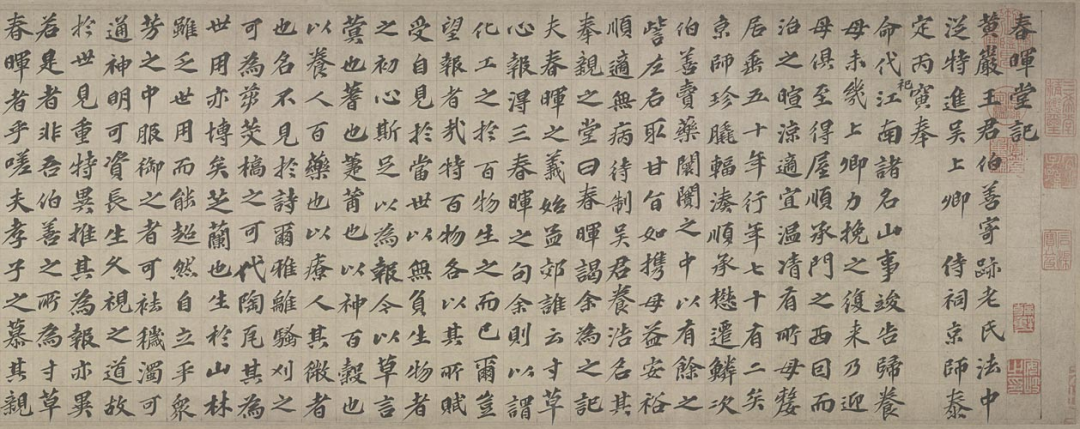 春暉堂記
黃巖王君伯善寄跡老氏法中
泛特進吳上卿 侍祠京師泰
定丙寅奉
命代祀江南諸名山事竣告歸養
母未幾上卿力挽之復来乃迎
母俱至得屋順承門之西日而
治之暄涼適宜温凊有所母嫠
居垂五十年行年七十有二矣
京師珍臘輻湊順承懋遷鱗次
伯善賣藥闤闠之中以有餘之
訾左右取甘旨如携母益安裕
順適無病待制吳君養浩名其
奉親之堂曰春暉謁余為之記
夫春暉之義始孟郊誰云寸草
心報得三春暉之句余則以謂
化工之於百物生之而已爾豈
望報者哉特百物各以其所賦
受自見於當世以無負生物者
之初心斯足以為報今以草言
蓂也蓍也箑莆也以神百穀也
以養人百藥也以療人其微者
也名不見於詩爾雅離騷刈之
可為蒭茭槁之可代陶瓦其為
世用亦博矣芝蘭也生於山林
雖乏世用而能超然自立乎衆
芳之中服御之者可祛穢濁可
通神明可資長生久視之道故
於世見重特異推其為報亦異
若是者非吾伯善之所為寸草
春暉者乎嗟夫孝子之慕其親